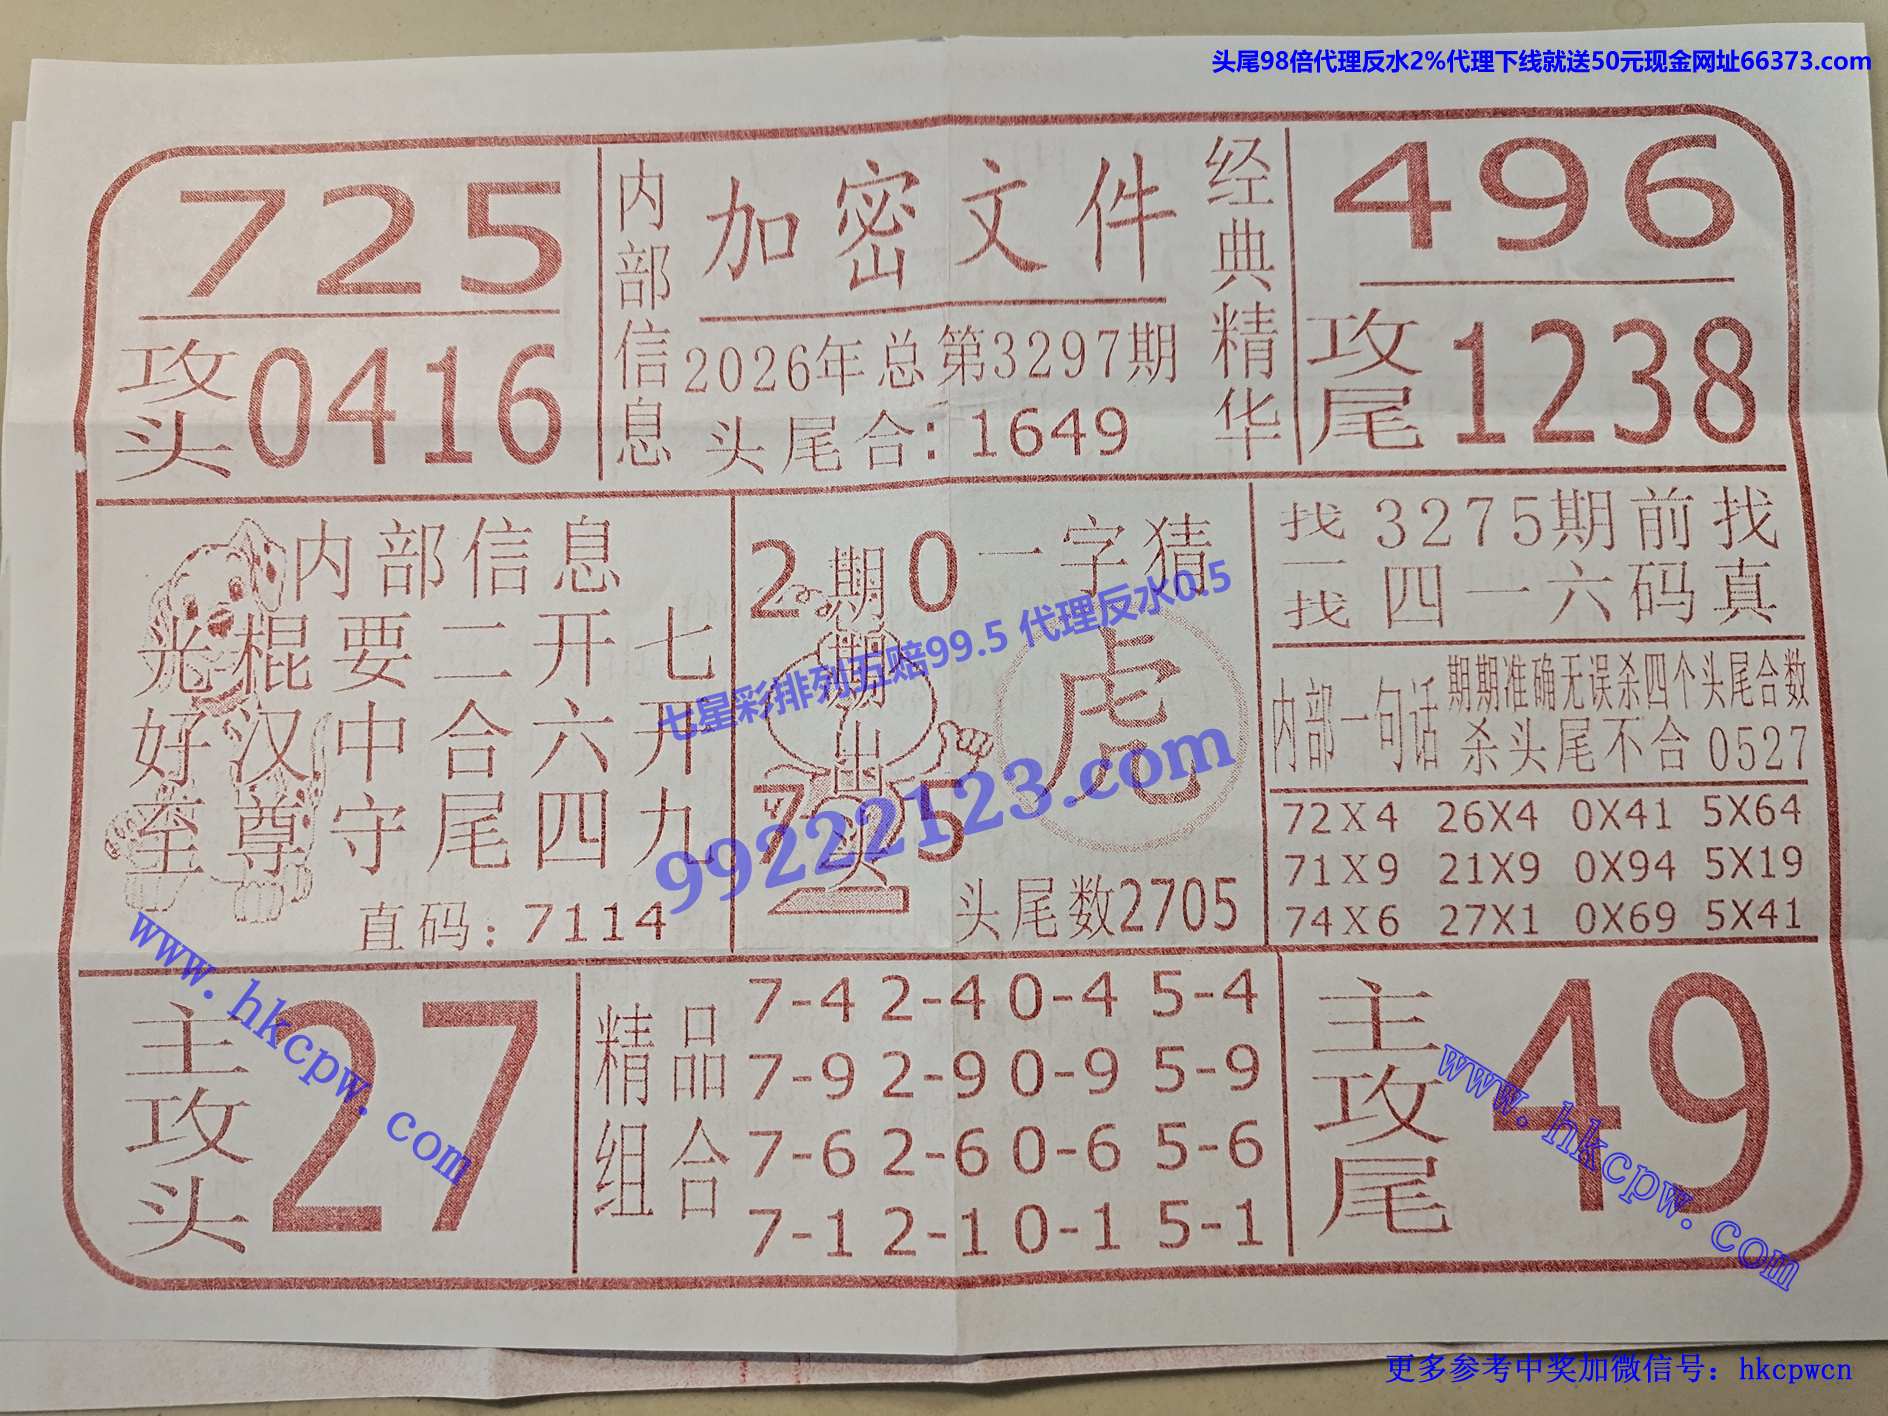 头尾98倍代理反水2%代理下线就送50元现金网址66373.com
725
攻头0416
内部信息
加密文件
2026年总第3297期
头尾合：1649
经典精华
496
攻尾1238
内部信息
光棍要二开七
好汉中合六开
至尊守尾四九
直码：7114
2 0
7 5
期期出一头
一字猜
虎
头尾数2705
找一找
3275期前找
四一六码真
内部一句话
期期准确无误杀四个头尾合数
杀头尾不合0527
72X4 26X4 0X41 5X64
71X9 21X9 0X94 5X19
74X6 27X1 0X69 5X41
主攻头
27
精品组合
7-4 2-4 0-4 5-4
7-9 2-9 0-9 5-9
7-6 2-6 0-6 5-6
7-1 2-1 0-1 5-1
主攻尾
49
七星彩排列五赔99.5 代理反水0.5
99222123.com
www.hkcpw.com
www.hkcpw.com
更多参考中奖加微信号：hkcpwcn